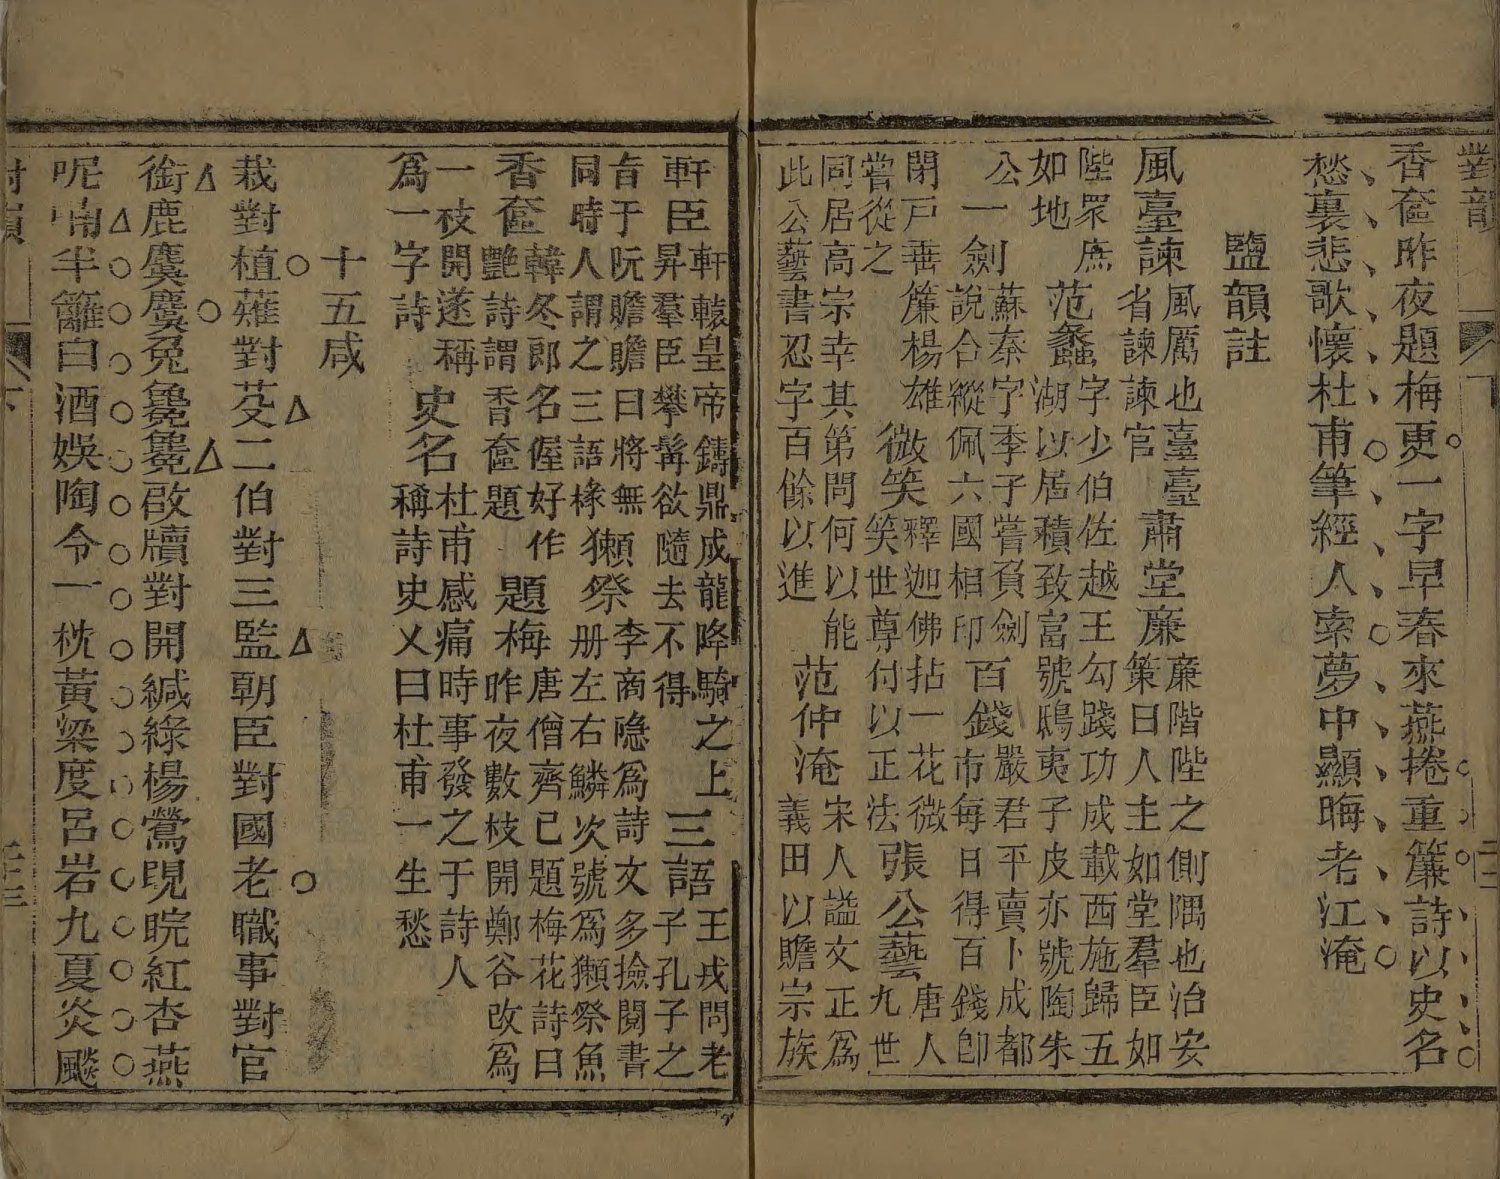 對韻
下
香奩昨夜題梅更一字早春來燕捲重簾詩以史名
愁裏悲歌懷杜甫筆經人索夢中顯晦老江淹
鹽韻註
風臺諫風厲也臺臺省諫諫官肅堂廉廉階陛之側隅也治安策曰人主如堂羣臣如
陛眾庶如地范蠡字少伯佐越王勾踐功成載西施歸五湖以居積致富號鴟夷子皮亦號陶朱
公一劍蘇秦字季子嘗負劍說合縱佩六國相印百錢嚴君平賣卜成都市每日得百錢即
閉戶垂簾楊雄嘗從之微笑釋迦佛拈一花微笑世尊付以正法張公藝唐人九世
同居高宗幸其第問何以能此公藝書忍字百餘以進范仲淹宋人謚文正為義田以贍宗族
軒臣軒轅皇帝鑄鼎成龍降騎之上昇羣臣攀髯欲隨去不得三語王戎問老子孔子之
旨于阮瞻瞻曰將無同時人謂之三語椽獺祭李商隐為詩文多撿閱書册左右鱗次號為獺祭魚
香奩韓冬郎名偓好作艷詩謂香奩題題梅唐僧齊已題梅花詩曰昨夜數枝開鄭谷改為
一枝開遂稱為一字詩史名杜甫感痛時事發之于詩人稱詩史乂曰杜甫一生愁
十五咸
栽對植薙對芟二伯對三監朝臣對國老職事對官
銜鹿麌麌兔毚毚啟牘對開緘綠楊鶯睍睆紅杏燕
呢喃半籬白酒娛陶令一枕黃粱度呂岩九夏炎飈
對韻
下